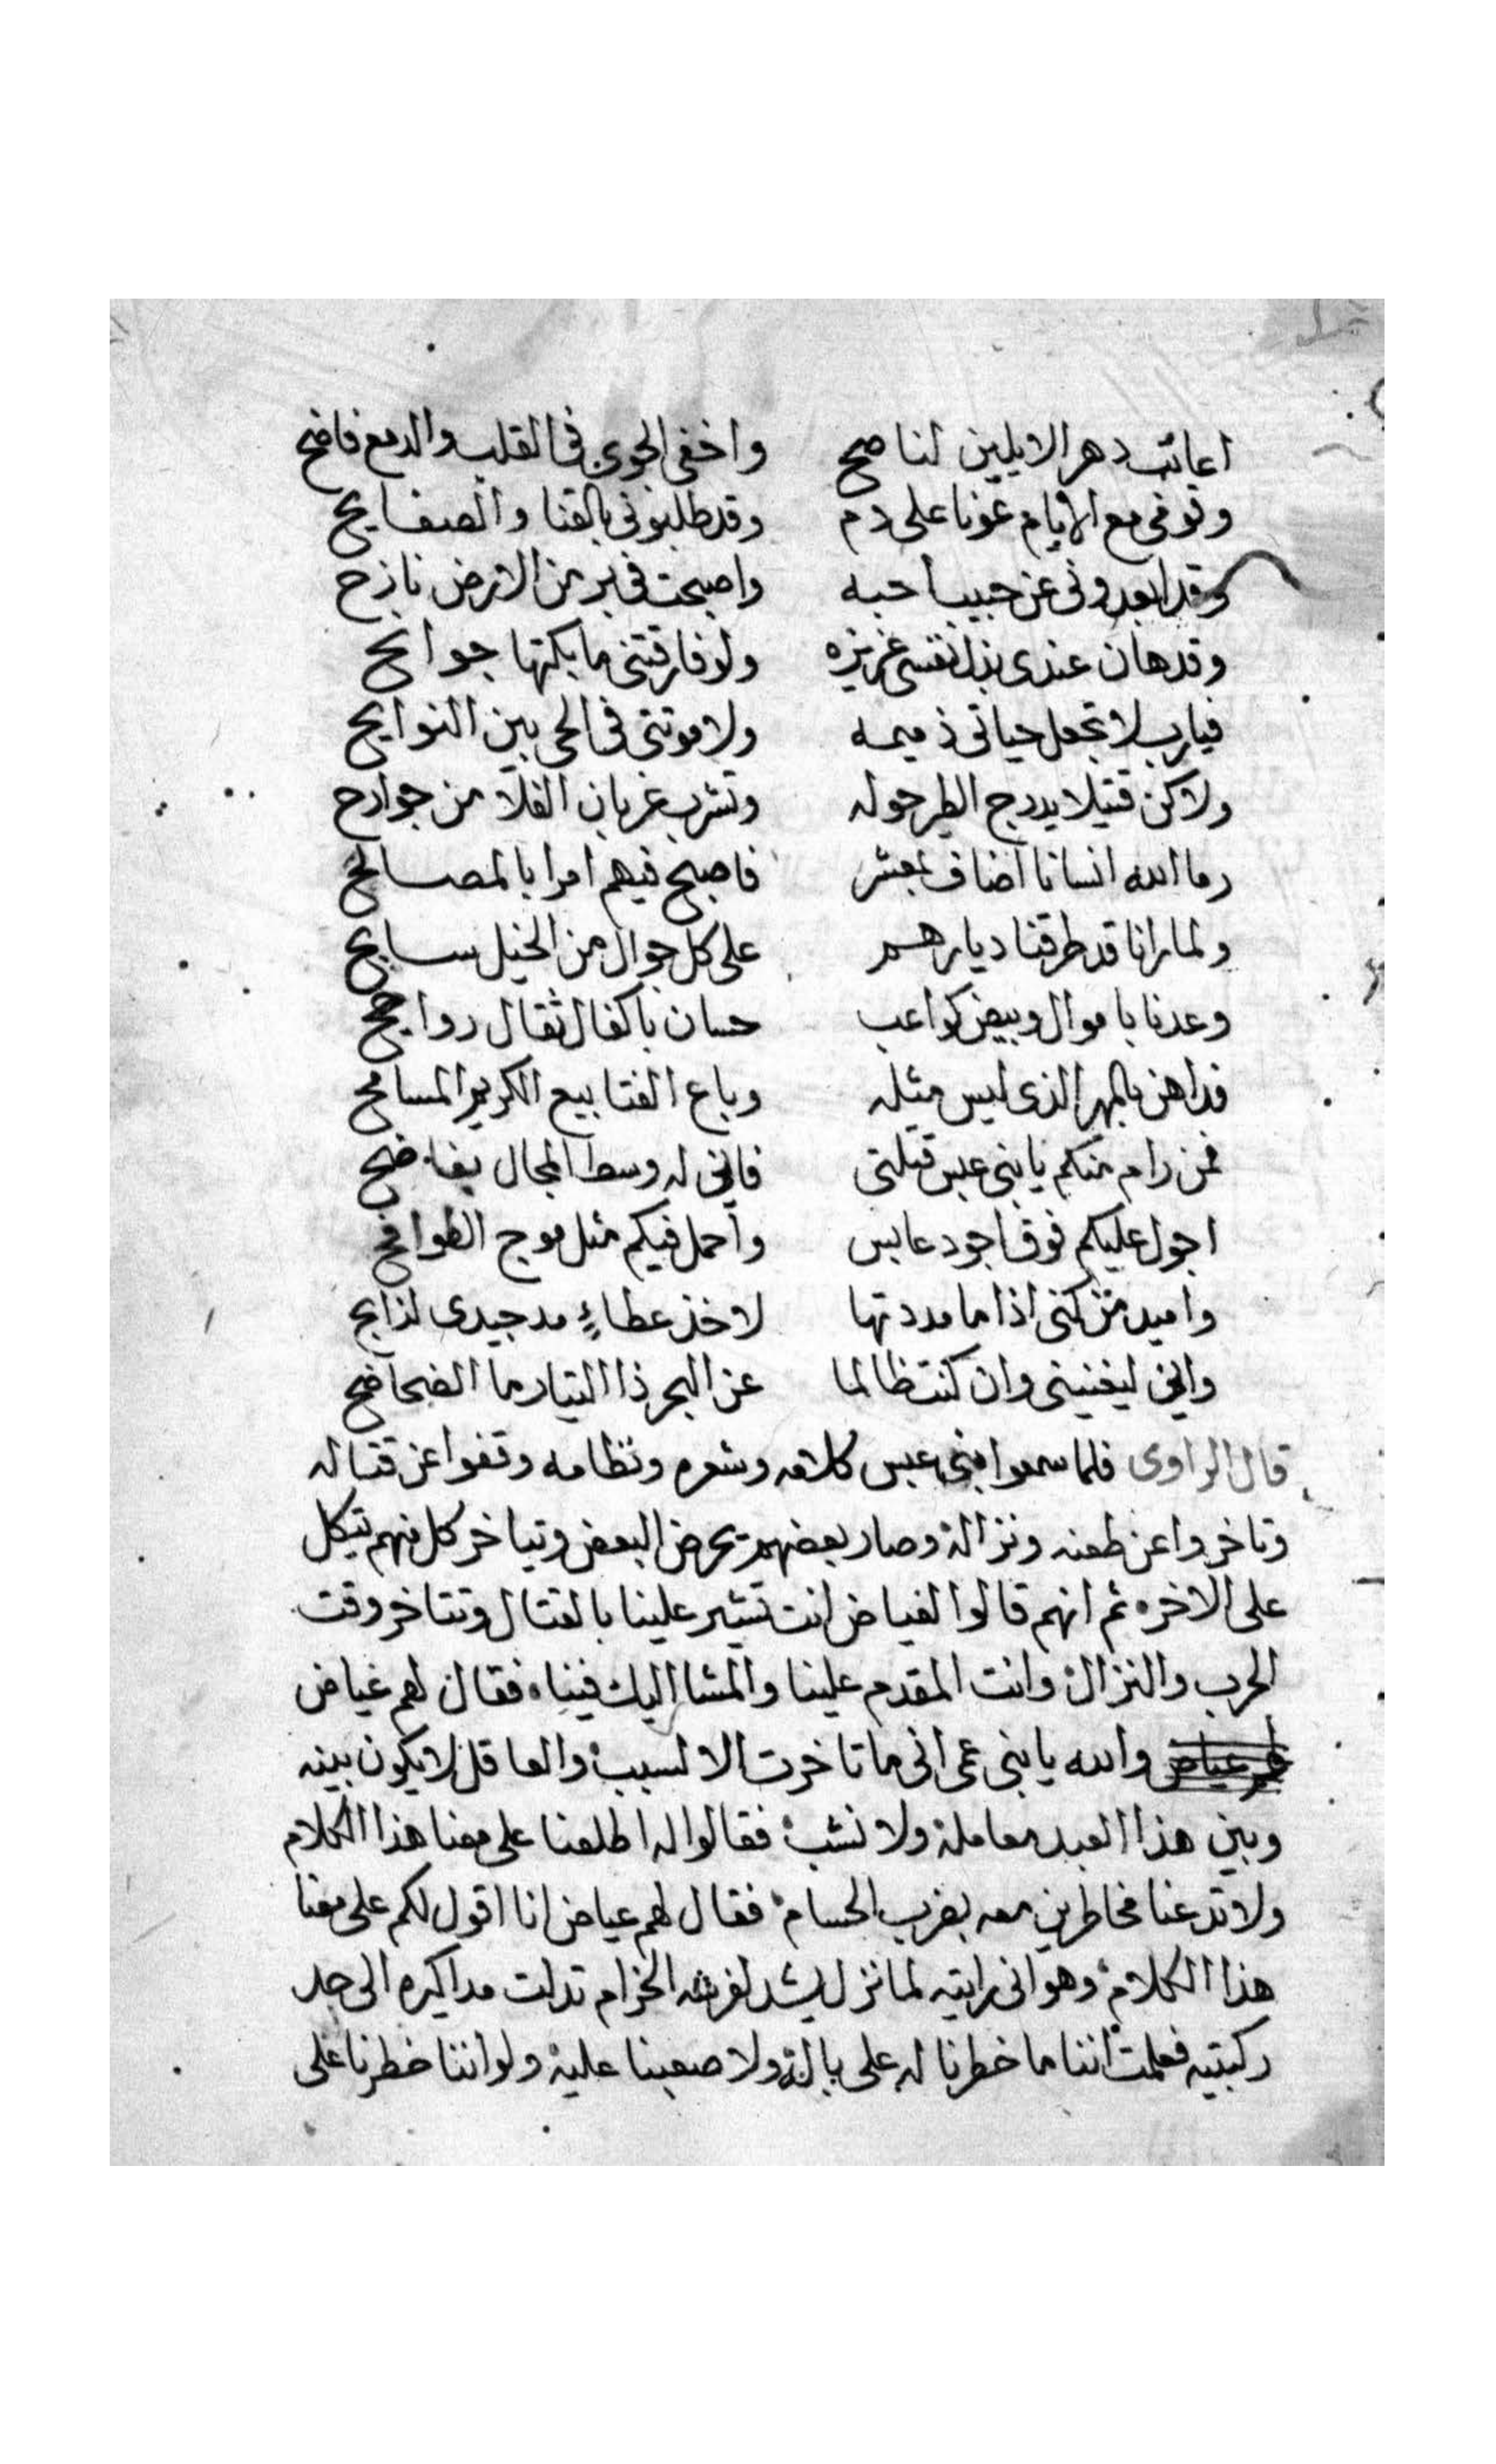 اعاتب دهر الا يلين لناصح واخفى الجوى فى القلب والدمع فاضح
وقومى مع الايام عونا على دم وقد طلبونى بالقنا والصفايح
وقد ابعدونى عن حبيب احبه واصبحت فى بر من الارض نازح
وقد هان عندى بذل نفسى عزيزه ولو فارقتنى ما بكتها جوانح
فيارب لا تجعل حياتى ذميمه ولا موتتى فى الحى بين النوايح
ولاكن قتيلا يدرج الطير حوله وتشرب غربان الفلا من جوارح
رما الله انسانا اضاف بمعشر فاصبح فيهم امرا بالمصالح
ولما رانا قد طرقنا ديارهم على كل جوال من الخيل سابح
وعدنا باموال وبيض كواعب حسان باكفال ثقال روايح
فداهن بالمهر الذى ليس مثله وباع الفتا بيع الكريم المسامح
فمن رام منكم يا بنى عبس قتلتى فانى له وسط المجال بفاضح
اجول عليكم فوق اجود عابس واحمل فيكم مثل موج الطوافح
واميد من كفى اذا ما مددتها لاخذ عطاءٍ مد جيدى لذابح
وانى ليغنينى وان كنت ظالما عن البحر ذا التيار ما الضحاضح
قال الراوى فلما سمعوا بنى عبس كلامه وشعره ونظامه وقفوا عن قتاله
وتاخروا عن طعنه ونزاله وصار بعضهم يحرض البعض ويتاخر كل منهم يتكل
على الاخره ثم انهم قالوا لغياض انت تشير علينا بالقتال وتتاخر وقت
الحرب والنزال وانت المقدم علينا والمشا اليك فينا فقال لهم غياض
والله يا بنى عمى انى ما تاخرت الا لسبب والعاقل لا يكون بينه
وبين هذا العبد معاملة ولا نشب فقالوا له اطلعنا على معنا هذا الكلام
ولا تدعنا مخاطرين معه بضرب الحسام فقال لهم عياض انا اقول لكم على معنا
هذا الكلام وهو انى رايته لما نزل ليشد لفرسه الحزام تدلت مداكيره الى حد
ركبتيه فعلمت اننا ما خطرنا له على باله ولا صعبنا عليه ولو اننا خطرنا على